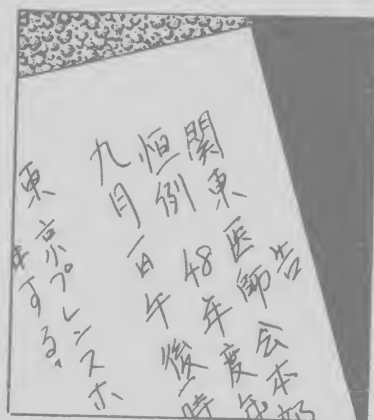 告
関東医師会本部
恒例 48年度
九月一日午後一時
東京プレンスホ
する。